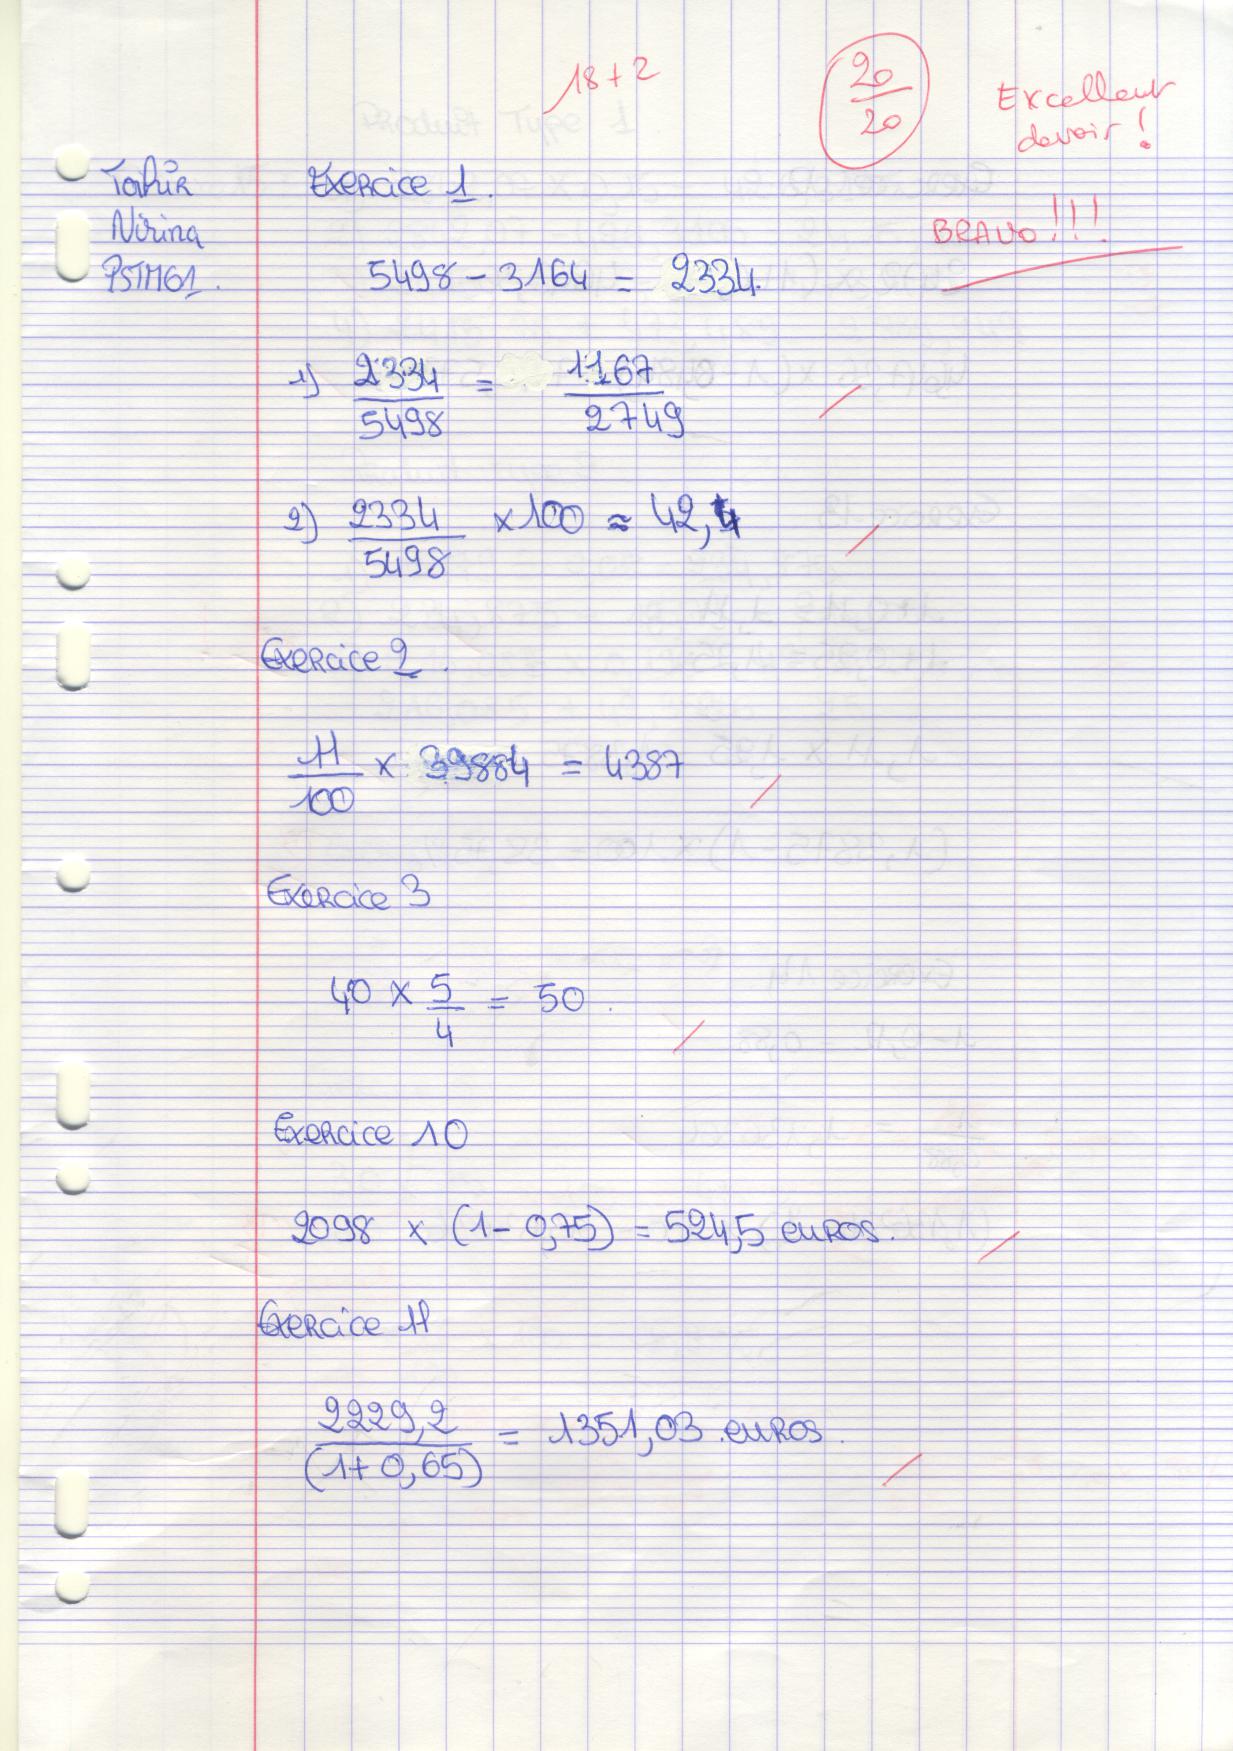 18 + 2
20/20
Excellent
devoir !
BRAVO !!!
Tahir
Nirina
PSTMG1.
Exercice 1.
5498 - 3164 = 2334.
1) 2334/5498 = 1167/2749
2) 2334/5498 × 100 ≈ 42,4
Exercice 2.
11/100 × 39884 = 4387
Exercice 3
40 × 5/4 = 50.
Exercice 10
2098 × (1 - 0,75) = 524,5 euros.
Exercice 11
2229,2/(1 + 0,65) = 1351,03 euros.